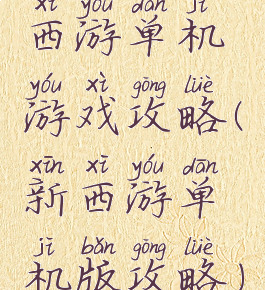 xī yóu dān jī
西游单机
yóu xì gōng lüè
游戏攻略(
xīn xī yóu dān
新西游单
jī bǎn gōng lüè
机版攻略)